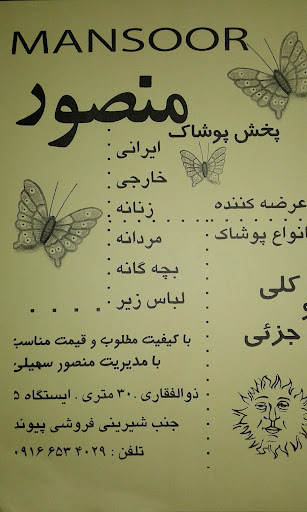 MANSOOR
منصور
پخش پوشاک
ایرانی
خارجی
عرضه کننده
زنانه
انواع پوشاک
مردانه
بچه گانه
کلی
و
جزئی
لباس زیر
با کیفیت مطلوب و قیمت مناسب
با مدیریت منصور سهیلی
ذوالفقاری . ۳۰ متری . ایستگاه ۵
جنب شیرینی فروشی پیوند
تلفن : ۰۹۱۶۶۵۳۴۰۲۹